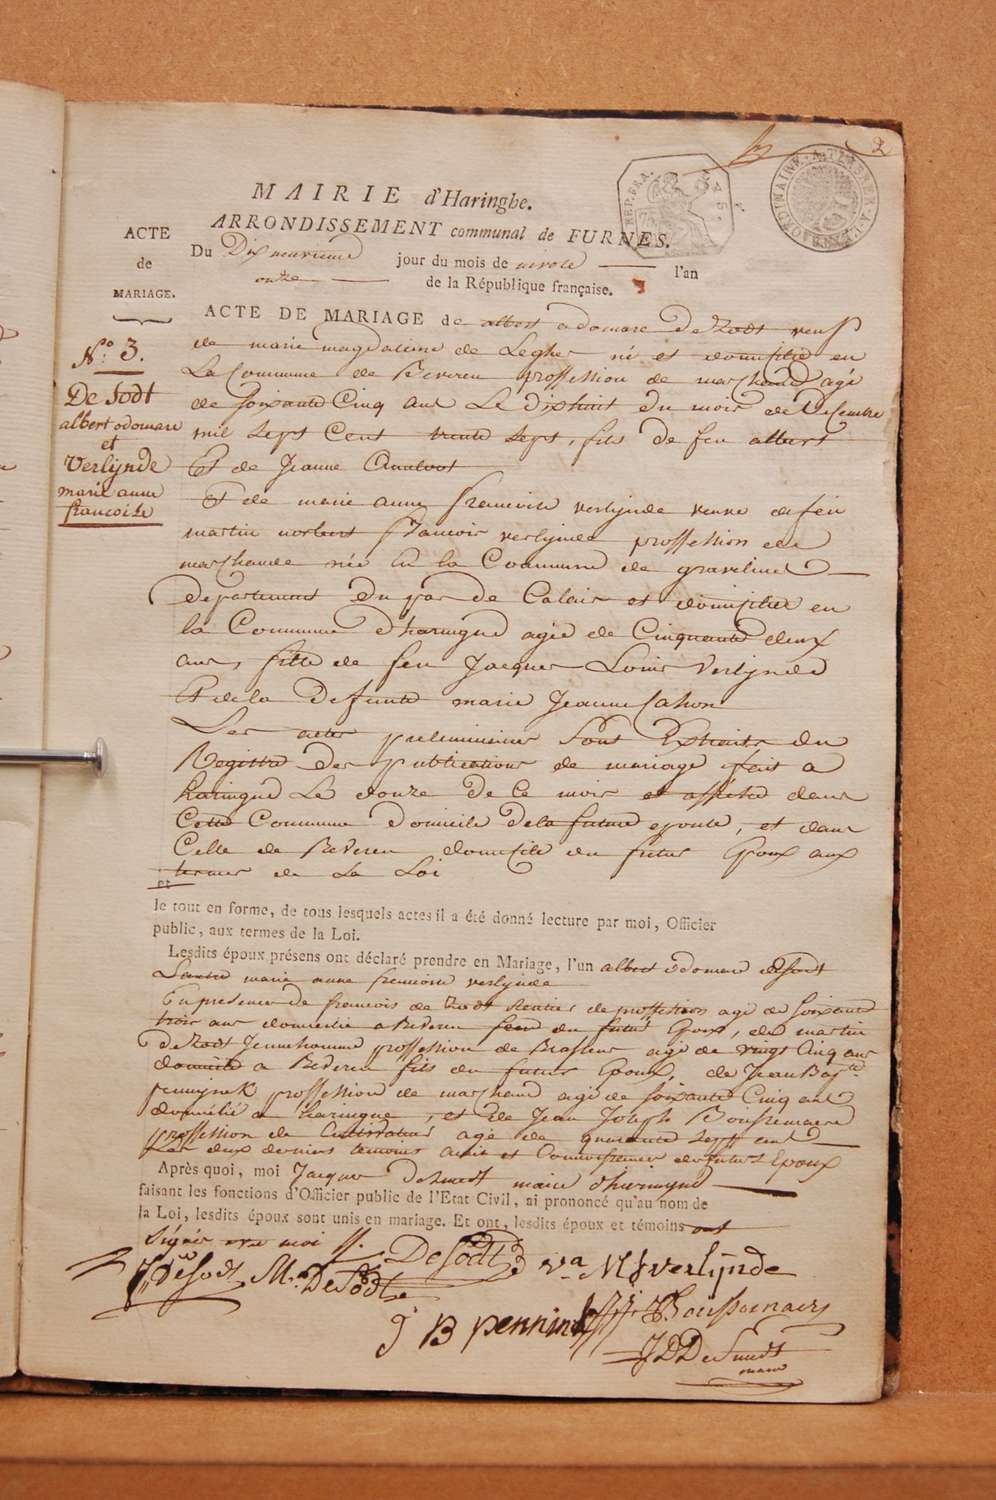 2
REP. FRA.
MAIRIE d'Haringhe.
ARRONDISSEMENT communal de FURNES.
ACTE
de
MARIAGE.
Du Dix neuvieme jour du mois de nivose l'an
onze de la République française.
ACTE DE MARIAGE de albert odomare de Sodt veuf
de marie magdaleine de Legher né et domicilié en
La Commune de Beveren proffession de marchand agé
de soixante Cinq ans Le dixhuit du mois de Decembre
mil sept Cent trente sept, fils de feu albert
Et de Jeanne
N.o 3.
De Sodt
albert odomare
et
Verlynde
marie anne
francoise
Et de marie anne francoise verlynde veuve de feu
martin norbert francois verlynde proffession de
marchande née en la Commune de gravelines
departement du pas de Calais et domiciliée en
la Commune d'haringue agée de Cinquante deux
ans, fille de feu Jacques Louis Verlynde
Et de la defunte marie Jeanne Cahon
Les actes preliminaires sont Extraits du
Registre des publications de mariage fait a
haringue Le douze de Ce mois et affiché dans
Cette Commune domicile de la future epouse, et dans
Celle de Beveren domicile du futur Epoux aux
termes de La Loi
et
le tout en forme, de tous lesquels actes il a été donné lecture par moi, Officier
public, aux termes de la Loi.
Lesdits époux présens ont déclaré prendre en Mariage, l'un albert odomare de Sodt
Lautre marie anne francoise verlynde
En presence de francois de Sodt Rentier de proffession agé de soixante
trois ans domicilié a Beveren frere du futur Epoux, de martin
de Sodt Jeunehomme proffession de Brasseur agé de vingt Cinq ans
domicilié a Beveren fils du futur Epoux, de Jean Bap.te
pennynck proffession de marchand agé de soixante Cinq ans
domicilié a haringue, et de Jean Joseph Boussemaere
proffession de Cultivateur agé de quarante sept ans
Les deux derniers temoins amis et Connoissances des futurs Epoux
Après quoi, moi Jacques Desmedt maire d'haringue
faisant les fonctions d'Officier public de l'Etat Civil, ai prononcé qu'au nom de
la Loi, lesdits époux sont unis en mariage. Et ont, lesdits époux et témoins ont
signés avec moi
De Sodt va M f verlynde
De Sodt M. De Sodt
J B pennink J: J: Boussemaere
J D De Smedt
maire